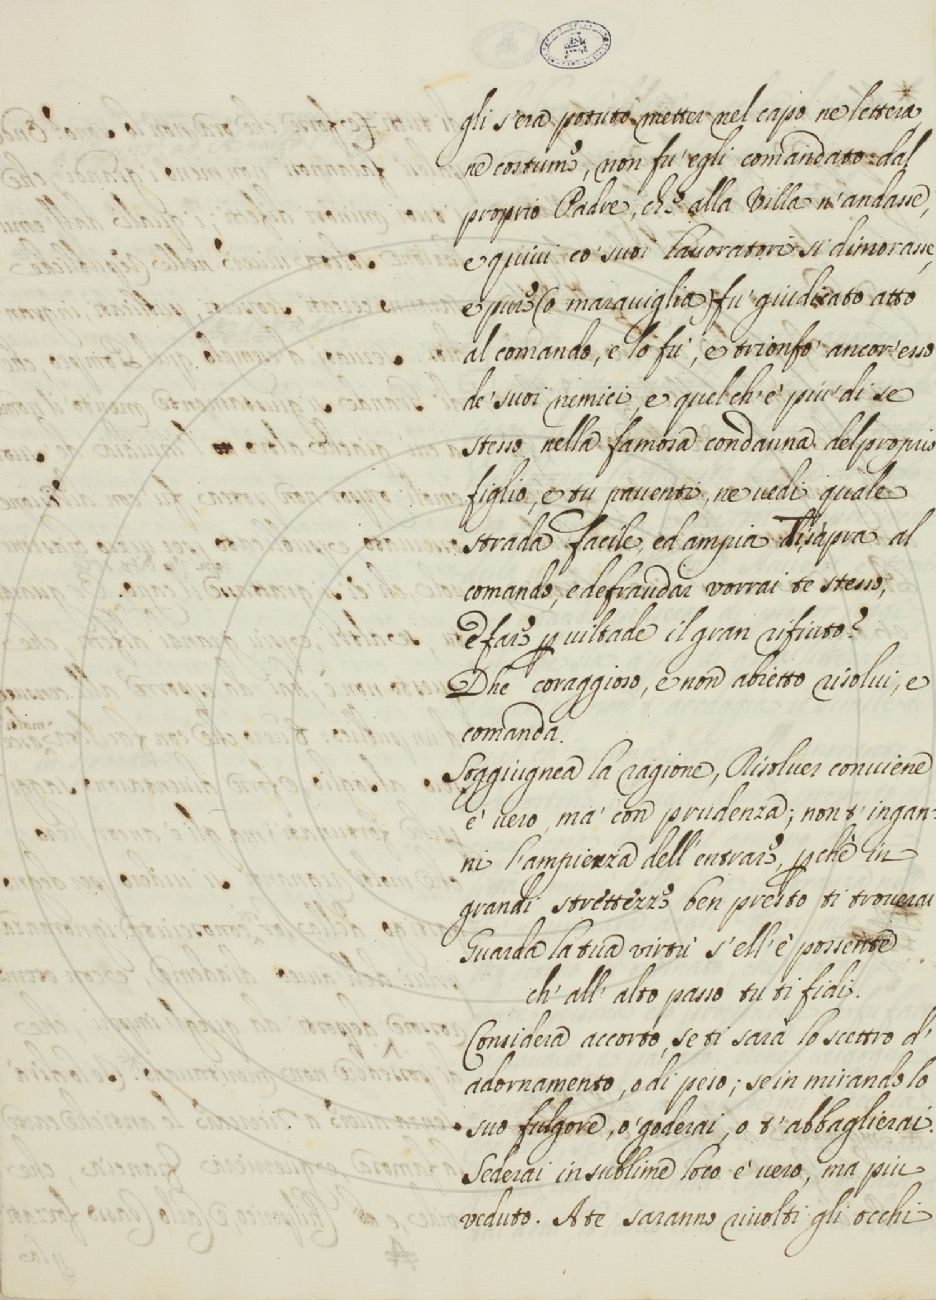 gli s'era potuto metter nel capo ne lettera,
ne costume, non fu' egli comandato dal
proprio Padre, che alla Villa n'andasse,
e quivi co' suoi lavoratori si dimorasse,
e pure (o maraviglia) fu' giudicato atto
al comando, e lo fu', e trionfo' ancor'esso
de' suoi nemici, e quel ch'e' piu' di se
stesso nella famosa condanna del proprio
figlio, e tu paventi, ne vedi quale
strada facile, ed ampia ti s'apra al
comando, e defraudar vorrai te stesso,
e fare p viltade il gran rifiuto?
Dhe coraggioso, e non abietto risolvi, e
comanda.
Soggiugnea la ragione, Risolver conviene
e' vero, ma' con prudenza; non t'ingan=
ni l'ampiezza dell'entrare, pche in
grandi strettezze ben presto ti troverai
Guarda la tua virtù s'ell'è possente
ch' all' alto passo tu ti fidi.
Considera accorto, se ti sarà lo scettro d'
adornamento, o di peso; se in mirando lo
suo fulgore, o' goderai, o t'abbaglierai.
Sederai in sublime loco e' vero, ma piu
veduto. A te saranno rivolti gli occhi